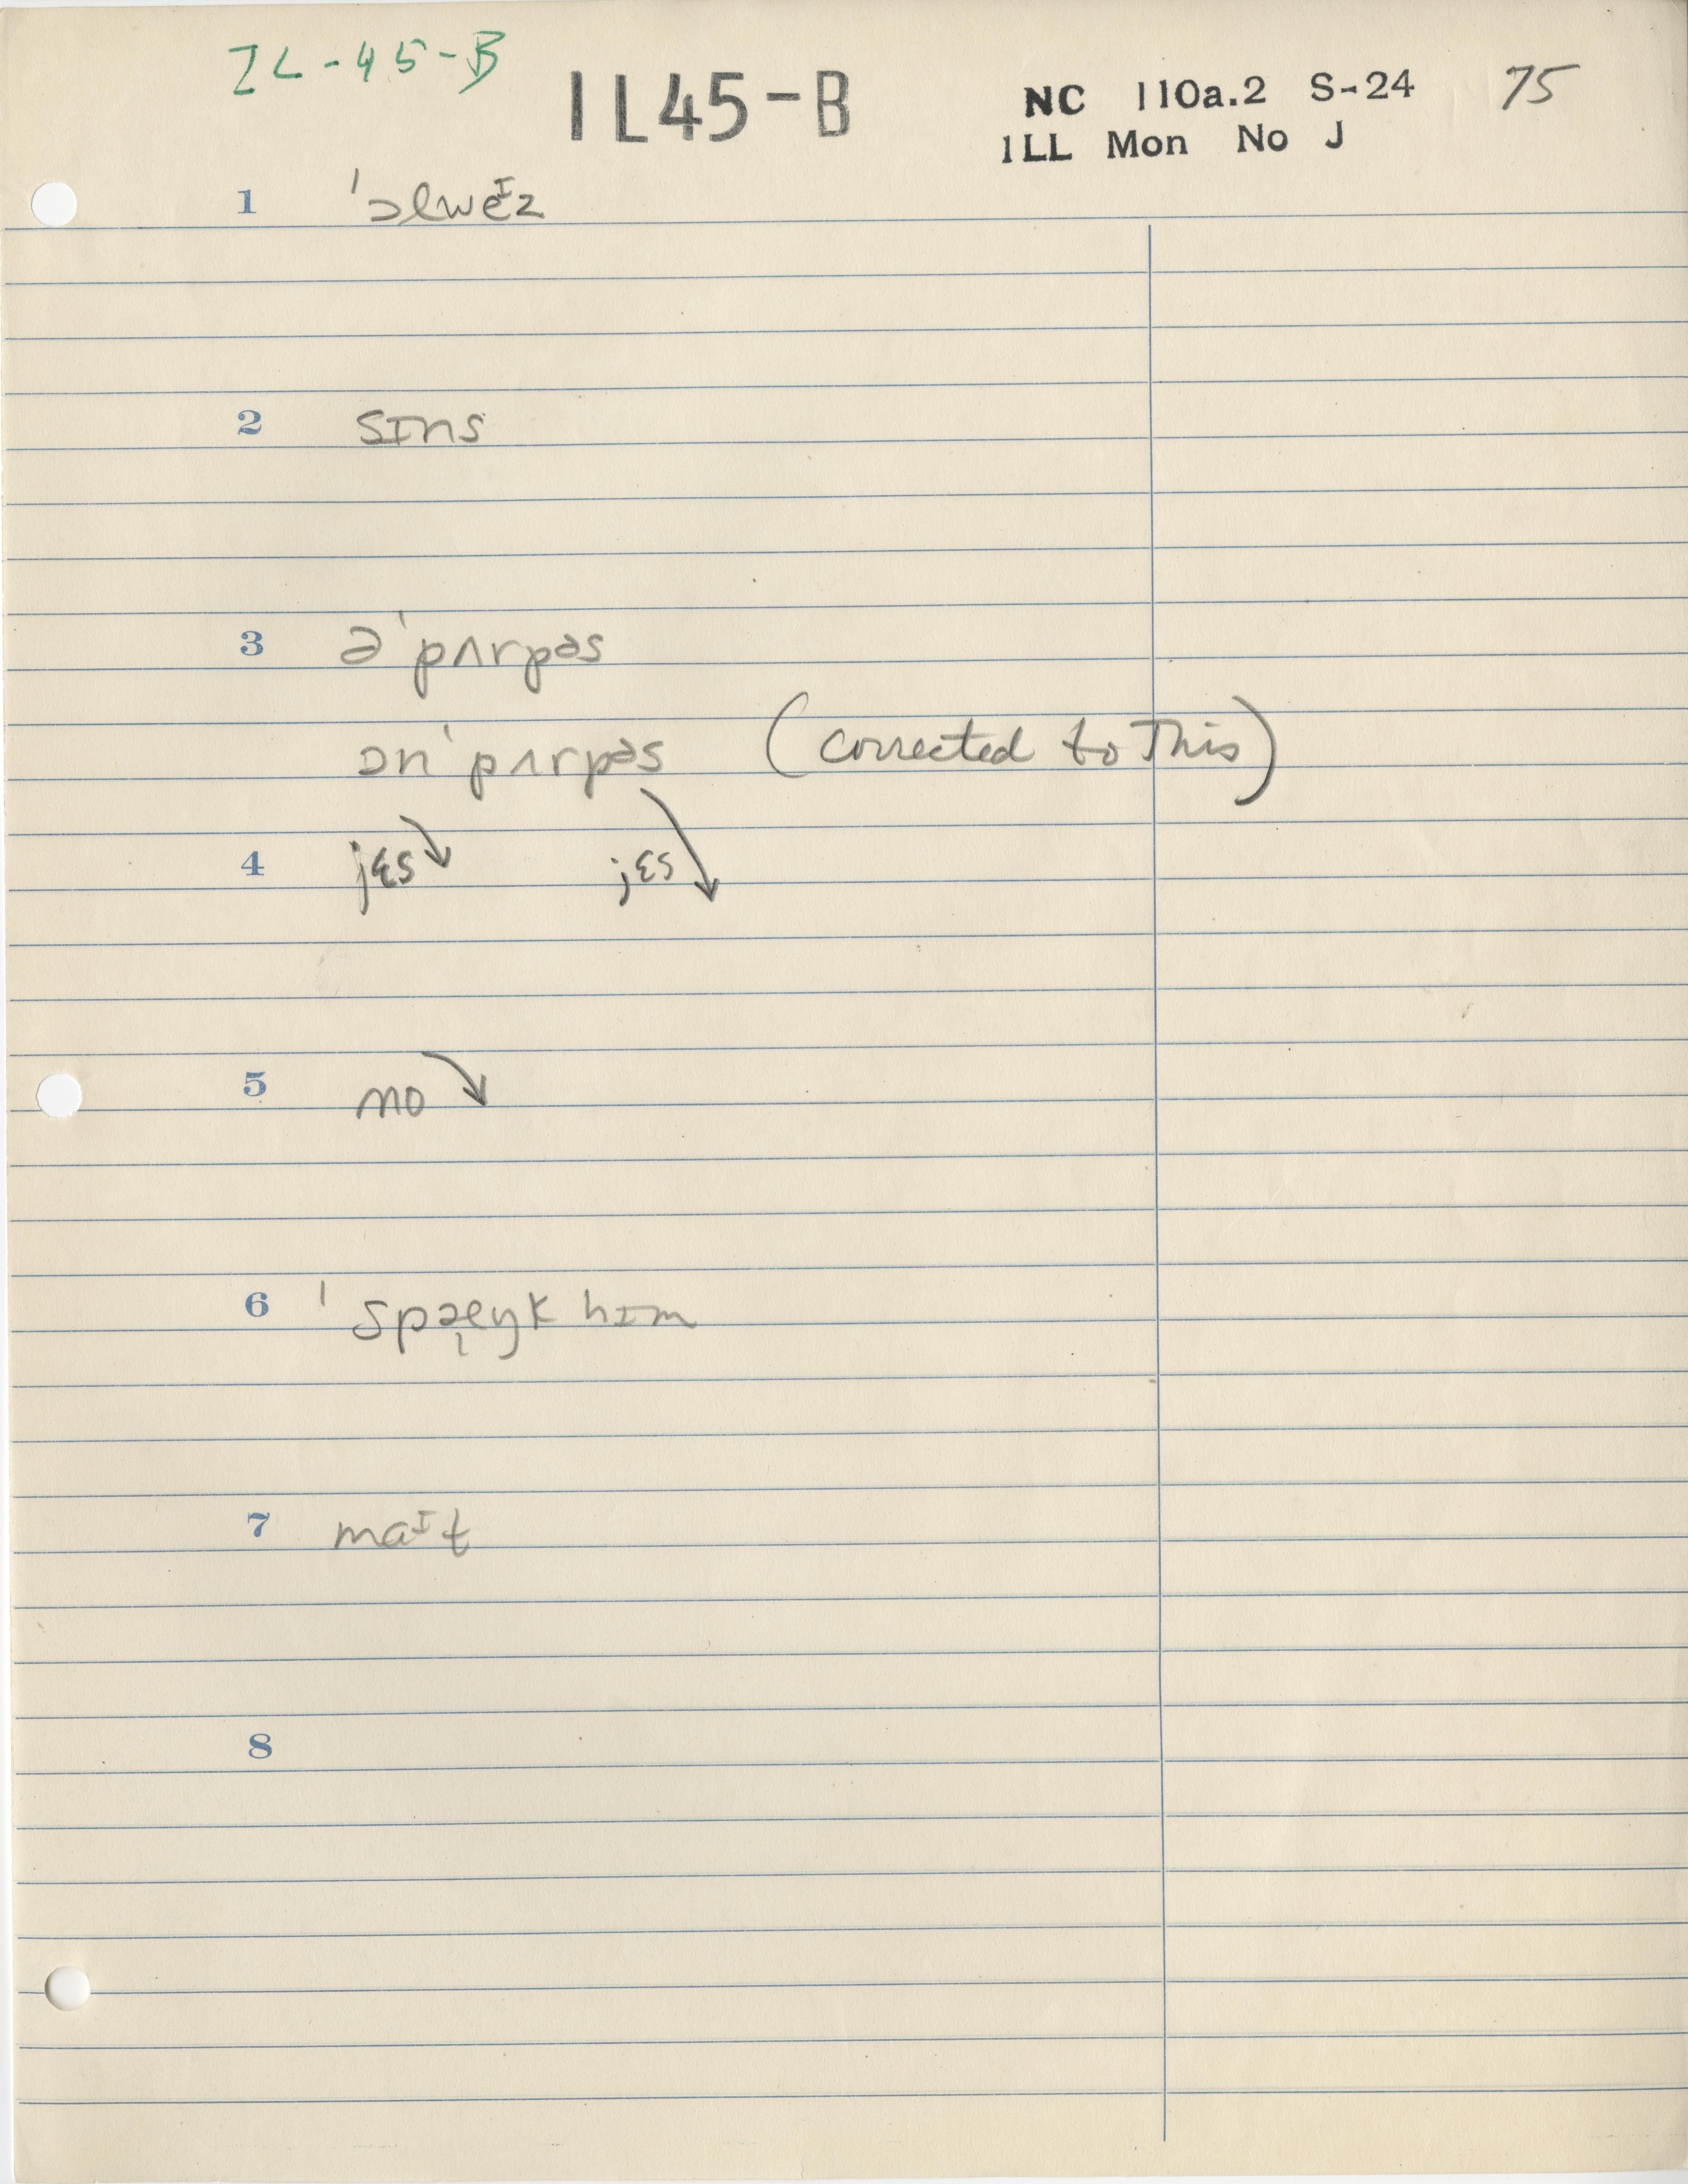 IL-45-B
IL45-B
NC 110a.2 S-24 75
ILL Mon No J
1 ˈɔlweᴵz
2 sɪns
3 ə ˈpʌrpəs
ɔn ˈpʌrpəs (corrected to This)
4 jɛs↘ jɛs↘
5 no↘
6 hɪm
7 maᴵt
8